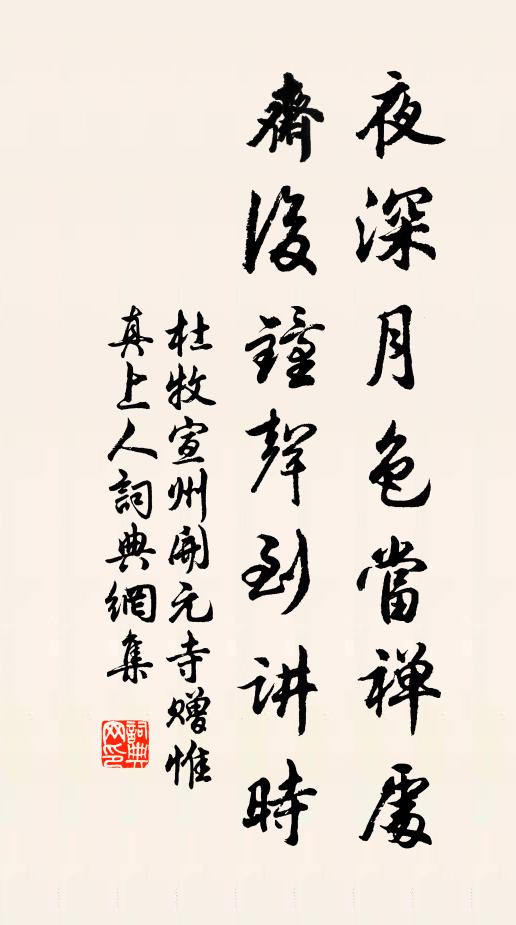 夜深月色當禪處
齋後鐘聲到講時
杜牧宣州開元寺贈惟
真上人詞典網集
詞典
网印